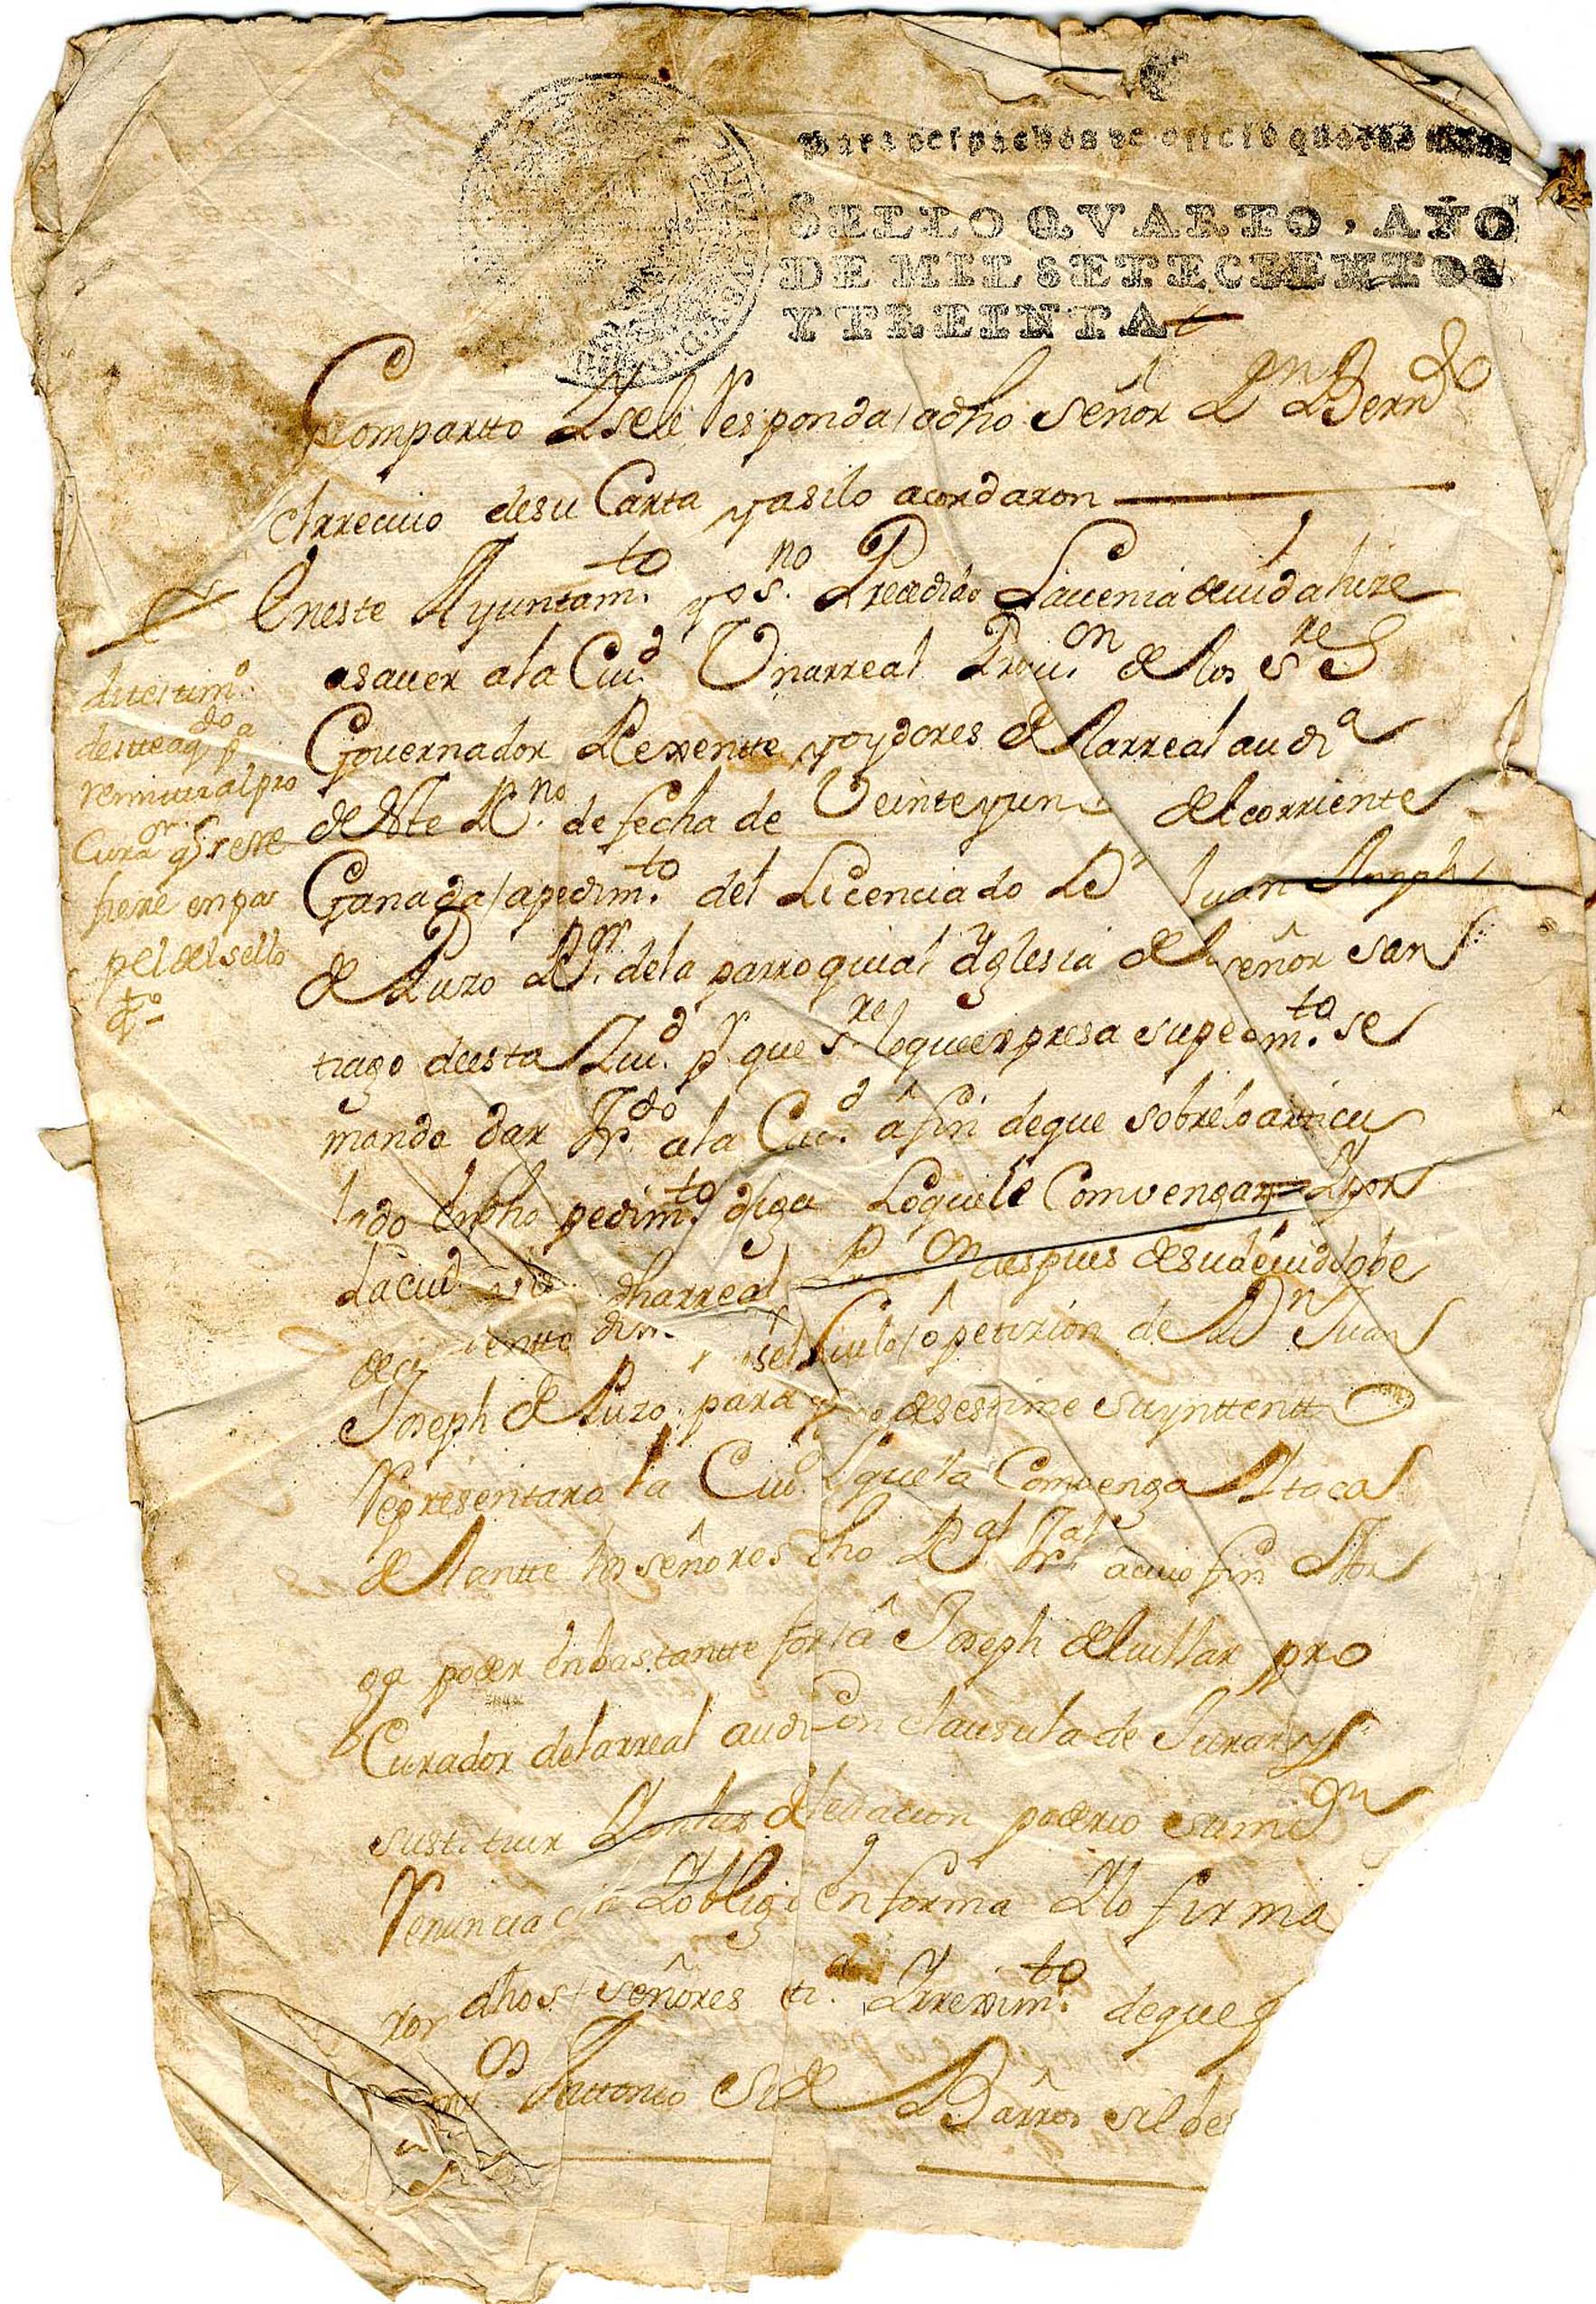 Para despachos de oficio quatro
SELLO QVARTO, AÑO
DE MIL SETECIENTOS
Y TREINTA
Compartto Ysele Responda adho señor Dn Berndo
elrreciuo desu Carta yasilo acordaron
Eneste Ayuntamto yo sno Precedido Liccenia deuida hize
asauer ala Ciud Vnarreal Prouon de los sres
Gouernador Rexente yoydores de larreal audia
de este Rno de fecha de Veinteyuno del corriente
Ganada apedimto del Licenciado Dn Juan Joseph
de Puzo Ror dela parroquial Yglesia de señor san
tiago deesta Ciud pr que sre loqueexpresa supedimto se
manda dar trdo ala Ciud â fin deque sobreloarticu
lado en dho pedimto diga loquele Comvengan Ypor
laciud dharreal Pron despues desudeuido obe
deci mientto petizion de Dn Juan
Joseph de Puzo para que desestime suynttentto
Representara la Ciud loquela Comvenga
delantte los señores dho Ral tral acuio fin
ga poder enbastantte forma â Joseph deluillar pro
Curador delarreal audia Con clausula de Jurar y
sustituir deleuacion poderio sumisn
Renunciacion Yobligon enforma Ylo firma
ron dhos señores Yrreximto deque
Anttonio de Barros
ditestimo
desteaqdo pa
remitiralpro
Curaor q
tiene enpa
pel del sello
qto